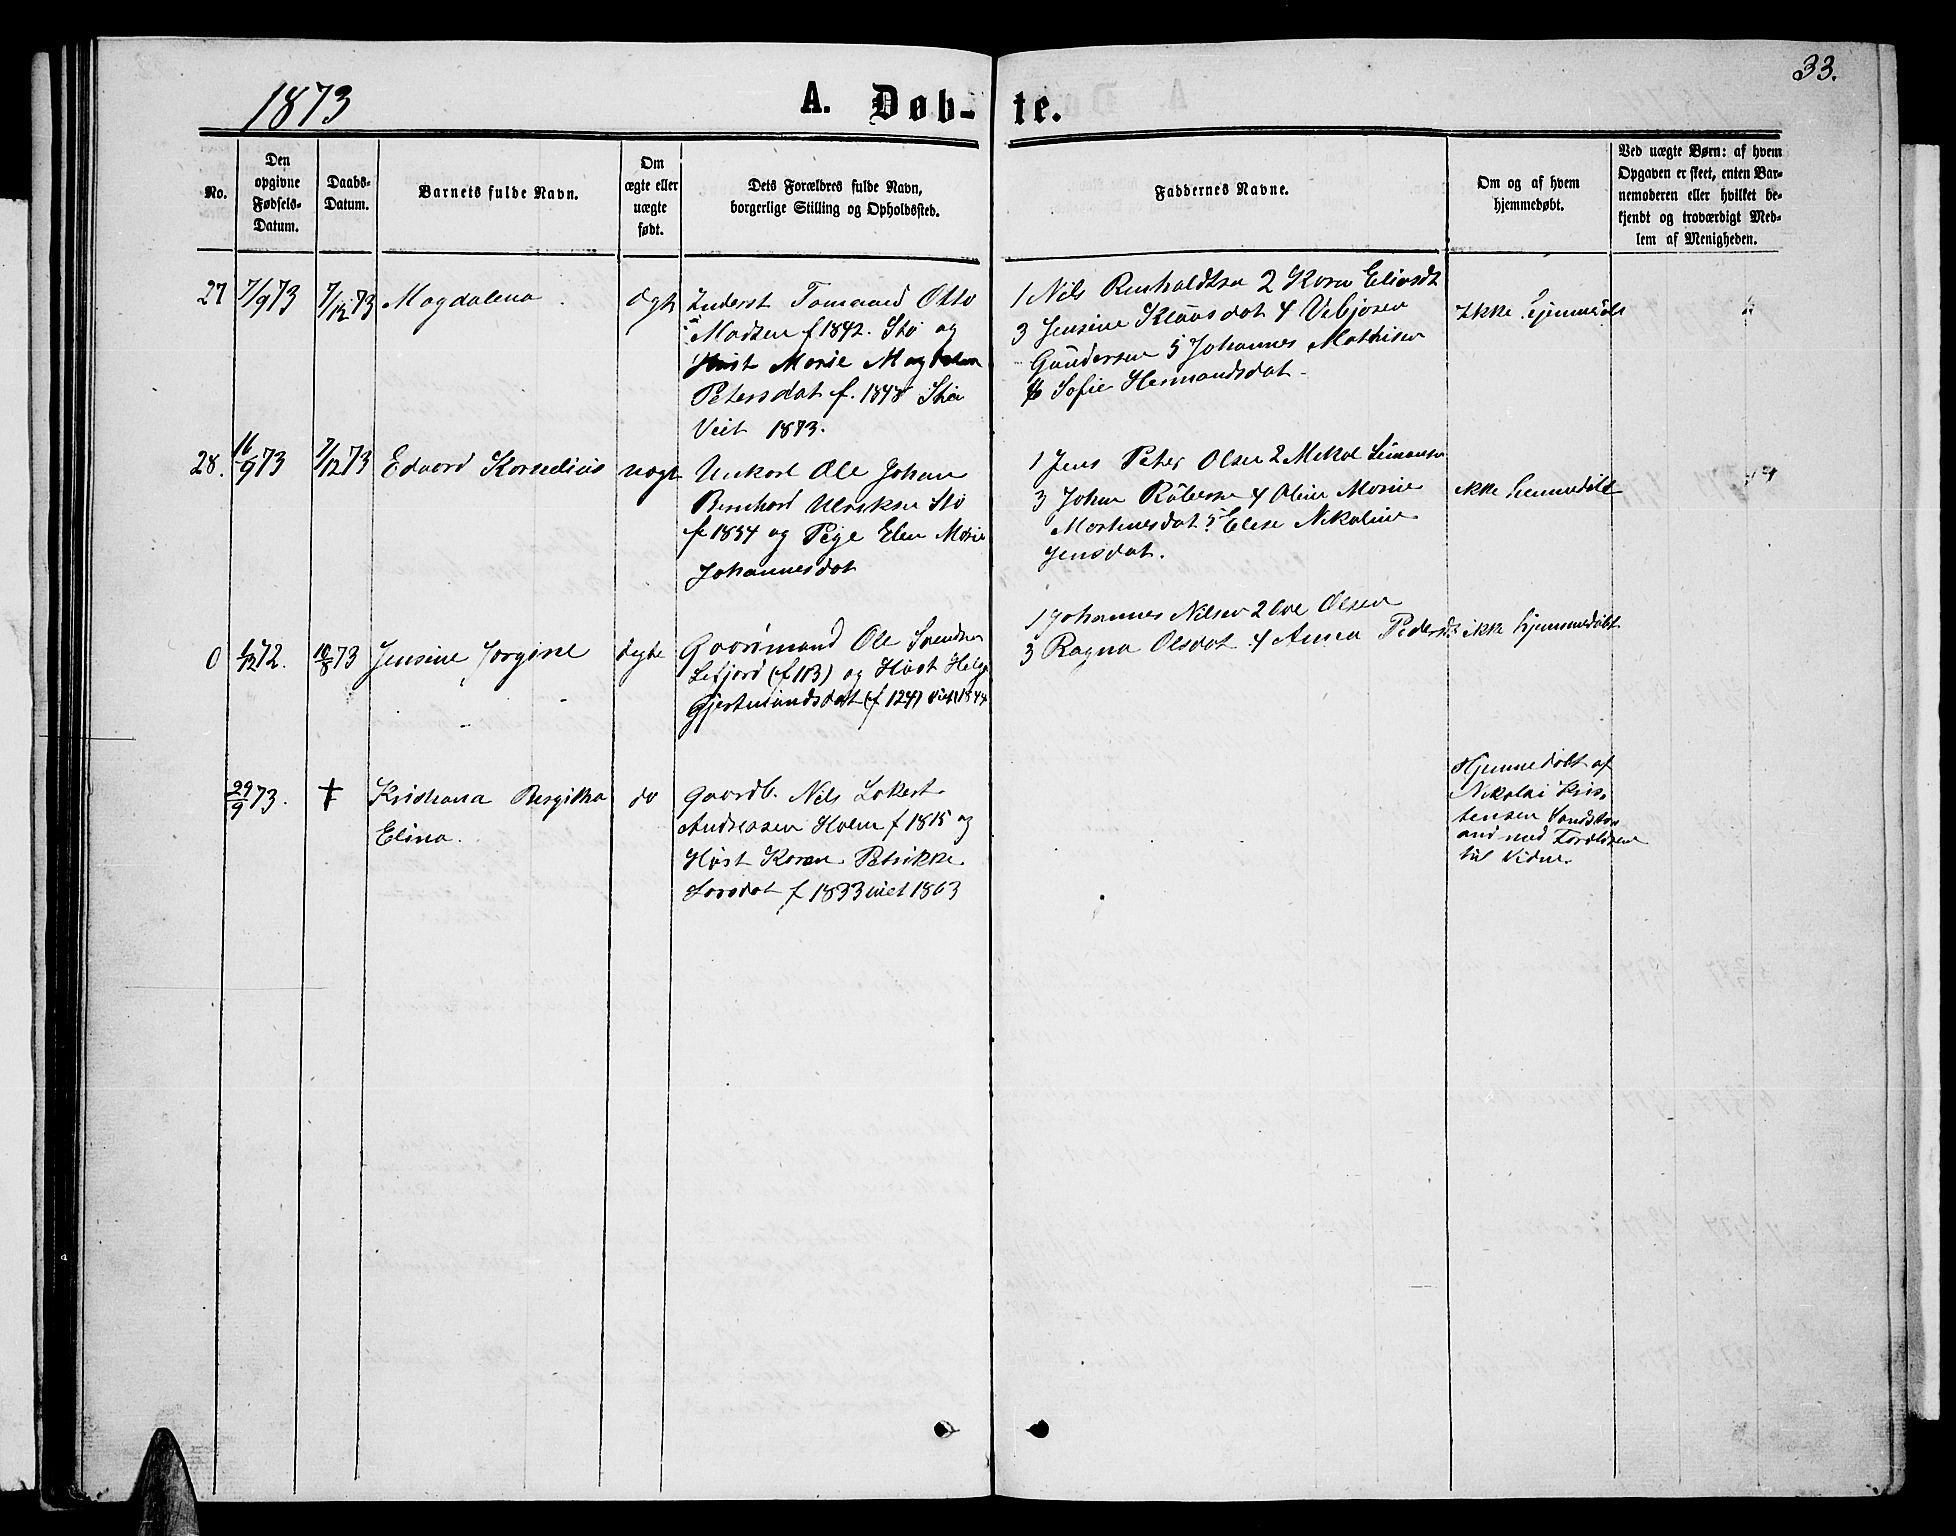 33.
1873
A. Døb- te.
No.
Den
opgivne
Fødsels-
Datum.
Daabs-
Datum.
Barnets fulde Navn.
Om
ægte eller
uægte
født.
Dets Forældres fulde Navn,
borgerlige Stilling og Opholdssted.
Faddernes Navne.
Om og af hvem
hjemmedøbt.
Ved uægte Børn: af hvem
Opgaven er skeet, enten Bar-
nemoderen eller hvilket be-
kjendt og troværdigt Med-
lem af Menigheden.
27 7/9 73 7/12 73 Magdalena
Inderst Tomaard Otto
Madsen f 1842. Stø og
Marie
Petersdat f. 1848 Stø
Viet 1873.
1 Nils 2 Karn Eliasdt
3 Jensine Klausdat 4
Gundersen 5 Johannes Mathisen
6 Sofie Hermandsdat
Ikke hjemmedøbt
28. 16/9 73 7/12 73 Edvard Kornelius uægte
Unkarl Ole Johan
Bernhard Ulriksen Stø
f 1854 og Pige Elen Marie
Johannesdat
1 Jens Peter Olsen 2 Mikal Simonsen
3 Johan 4 Oline Marie
Mortensdat 5 Elise Nikoline
Jensdat.
ikke hjemmedøbt
0 1/12 72. 10/8 73 Jensine Jorgine ægte
Gaardmand Ole
og Hust
1 Johannes Nilsen 2 Ole Olsen
3 Ragna Olsdat 4 Anna Pedersdt
ikke hjemmedøbt
29/9 73. † Kristiana Bergitha
Elina.
do
Gaardb. Nils Lokert
Andreasen Holm f 1815 og
Hust Karen Petrikke
Larsdat f 1833 viet 1863
Hjemmedøbt af
Nikolai Kris-
tensen Sandstr
and med Forældrene
til Vidne.